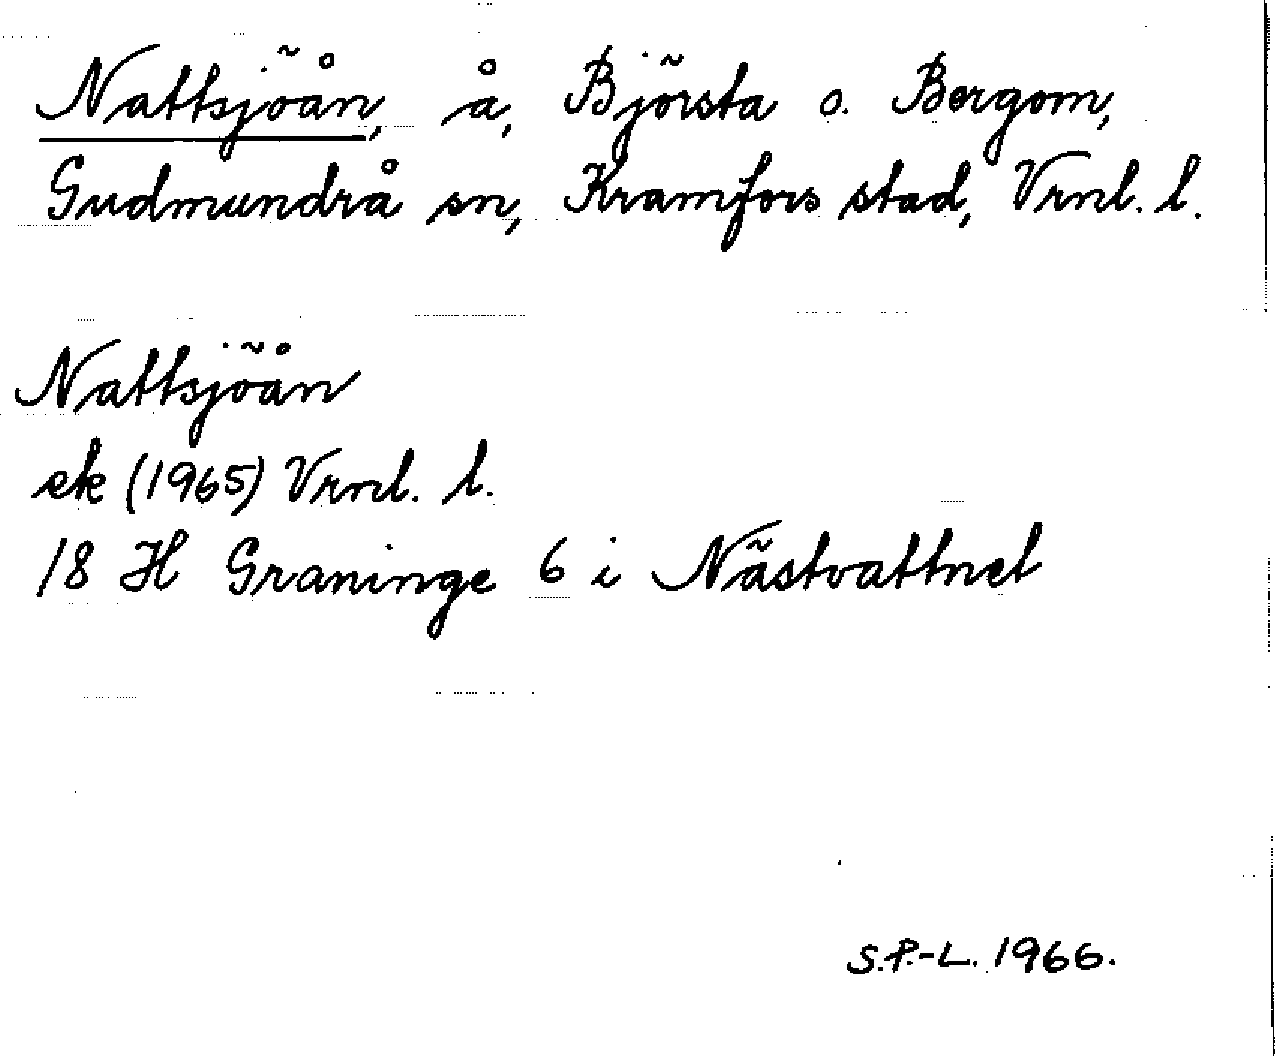 Nattsjöån, å, Björsta o. Bergom,
Gudmundrå sn, Kramfors stad, Vrnl. l.
Nattsjöån
ek (1965) Vrnl. l.
18 H Graninge 6 i Nästvattnet
S.P.-L. 1966.